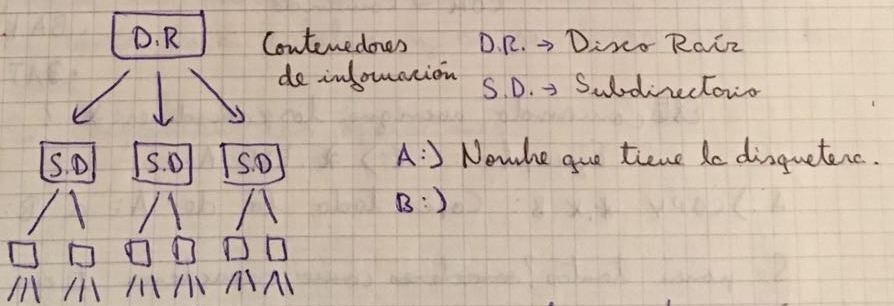 D.R
Contenedores
de información
D.R. → Disco Raíz
S.D. → Subdirectorio
S.D S.D S.D
A:) Nombre que tiene la disquetera.
B:)